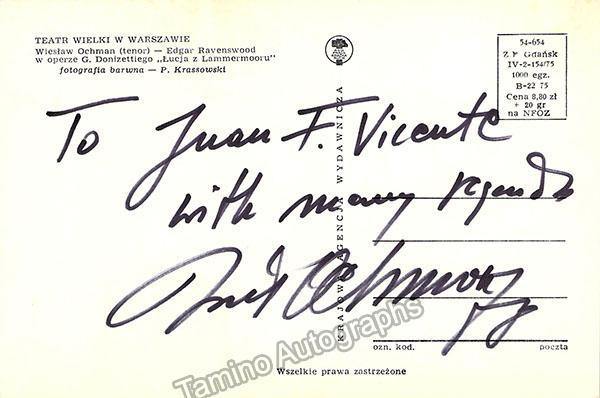 TEATR WIELKI W WARSZAWIE
Wiesław Ochman (tenor) — Edgar Ravenswood
w operze G. Donizettiego „Łucja z Lammermooru”
fotografia barwna — P. Krassowski
54-654
Z.P. Gdańsk
IV-2-154/75
1000 egz.
B-22 75
Cena 8,80 zł
+ 20 gr
na NFOZ
To Juan F. Vicente
with many regards
Ochman
KRAJOWA AGENCJA WYDAWNICZA
ozn. kod. poczta
Wszelkie prawa zastrzeżone
Tamino Autographs